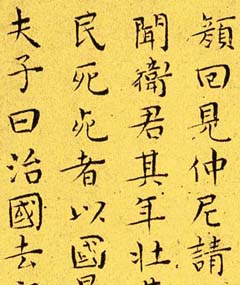 顔回見仲尼請
聞衛君其年壯
民死死者以國
夫子曰治國去